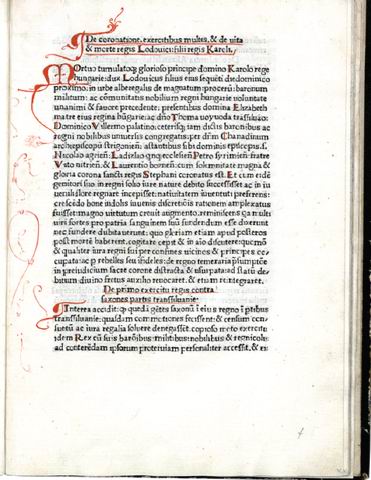 De coronatione. exercitibus multis. & de vita
& morte regis Lodouici: filii regis Karoli.
Mortuo tumulatoq; glorioso principe domino Karolo rege
hungarie: dux Lodouicus filius eius
proximo. in vrbe albaregalis de magnatum procerū: baronum
militum: ac cōmunitatis nobilium regni hungarie voluntate
vnanimi & fauore precedente; presentibus domina Elizabeth
matre eius regina hūgarie: ac dño Thoma voyuoda trāssiluāo:
Dominico Villermo palatino; ceterisq; iam dictis baronibus ac
regni nobilibus vniuersis congregatis; per dīm Chanadinum
archiepiscopū strigoniēn; astantibus sibi dominis episcopis. s.
Nicolao agriēn. Ladizlao qnqecclesien Petro syrimien. fratre
Vito nitrien. & Laurentio bosnen. cum solemnitate magna &
gloria corona sancti regis Stephani coronatus est. Et cum eidē
genitori suo in regni solio iure nature debito successisset ac in iu
fuisset: magno virtutum creuit augmento. reminiscens
viri fortes pro patria sanguinem suū fundendum esse dixerunt
nec fundere dubitauerunt: quo gloriam etiam apud posteros
post mortē haberent. cogitare cepit & in aīo discutere
& qualiter iura regni sui per confines vicinos & principes
cupata: ac p rebelles seu infideles: de regno temeraria
in preiudicium sacre corone distracta & vsurpata: ad statū de
bitum diuino fretus auxilio reuocaret. & etiam reintegraret.
De primo exercitu regis contra
saxones partis transsiluanie:
Interea accidit: q quedā gētes saxonū
transsiluanie: quasdam commotiones fecissent: & censum
ac iura regalia soluere denegassēt. copioso moto exercitu
idem Rex cū suis barōibus: militibus: nobilibus & regnicolis
ad conterēdam ipsorum proteruiam personaliter accessit. &